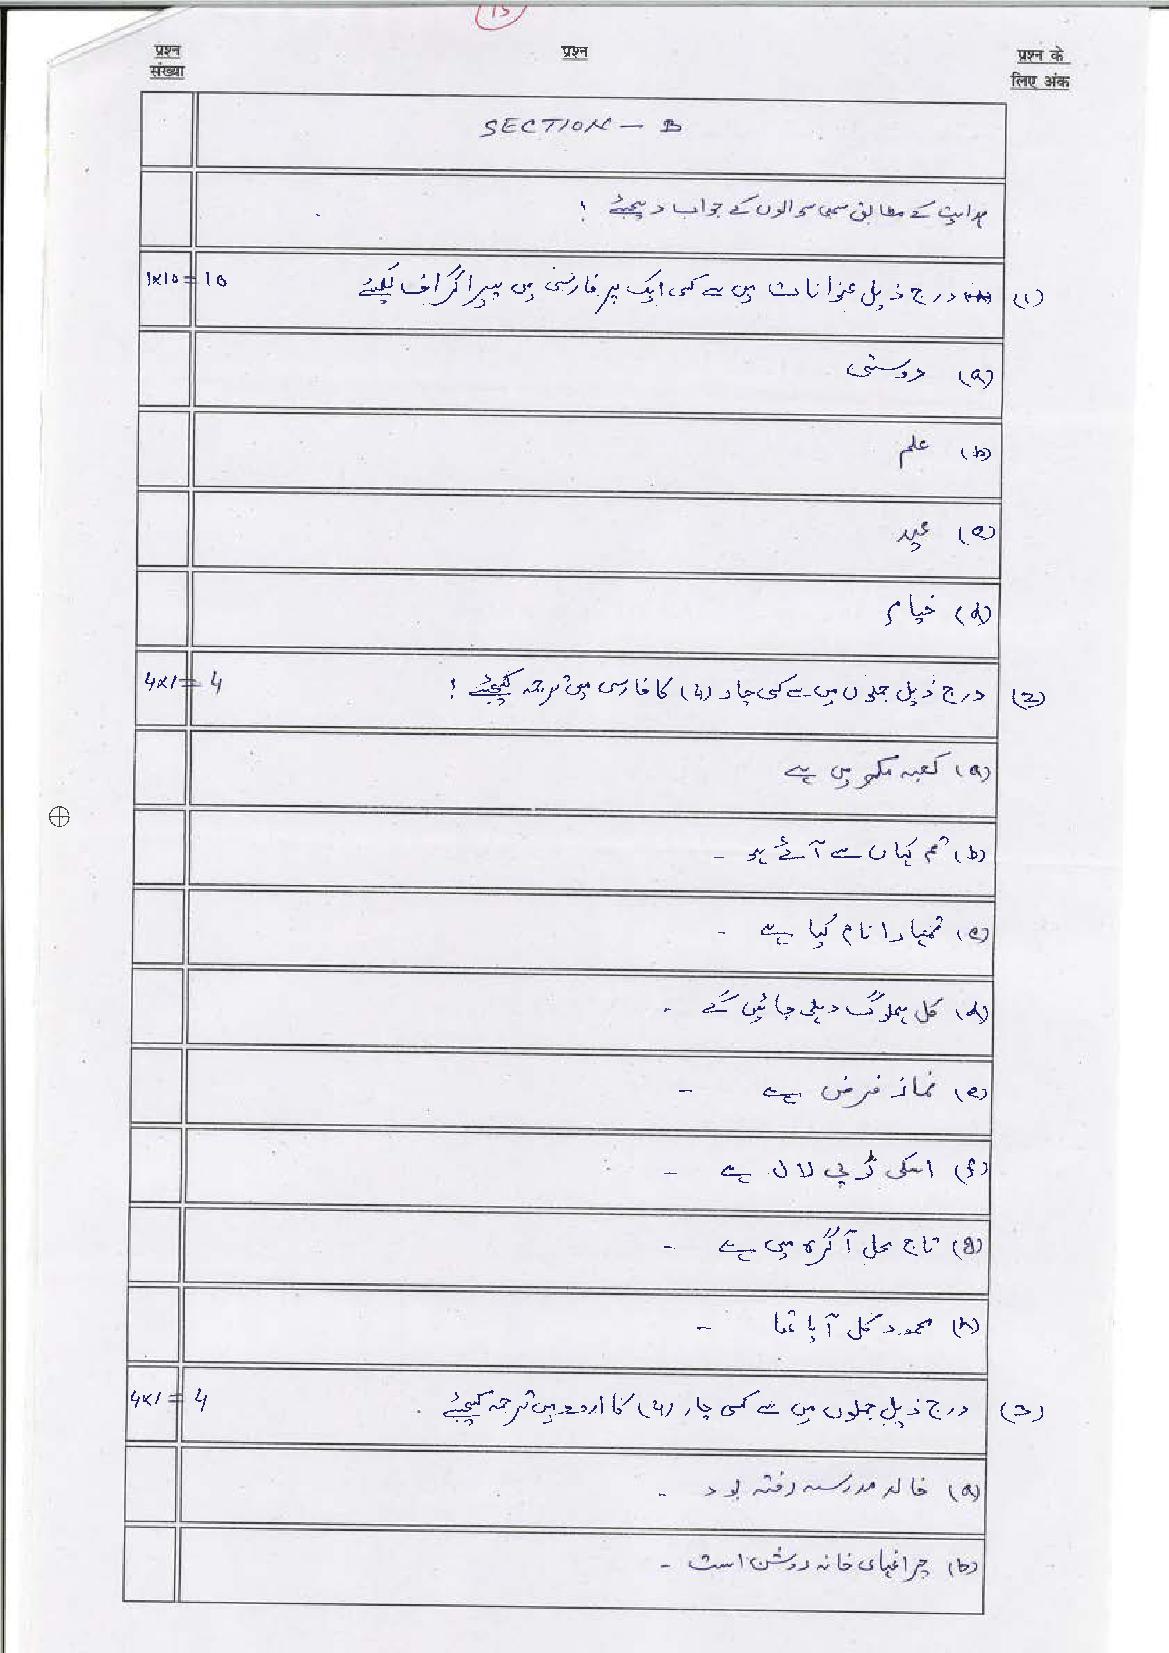 15
प्रश्न संख्या
प्रश्न
प्रश्न के लिए अंक
SECTION - B
ہدایت کے مطابق سبھی سوالوں کے جواب دیجئے :
(1) درج ذیل عنوانات میں سے کسی ایک پر فارسی میں پیراگراف لکھئے 1x10=10
(a) دوستی
(b) علم
(c) عید
(d) خیام
(2) درج ذیل جملوں میں سے کسی چار (4) کا فارسی میں ترجمہ کیجئے : 4x1=4
(a) کعبہ مکہ میں ہے
(b) تم کہاں سے آئے ہو -
(c) تمہارا نام کیا ہے -
(d) کل ہملوگ دہلی جائیں گے -
(e) نماز فرض ہے -
(f) اسکی ٹوپی لال ہے -
(g) تاج محل آگرہ میں ہے -
(h) محمود کل آیا تھا -
(3) درج ذیل جملوں میں سے کسی چار (4) کا اردو میں ترجمہ کیجئے . 4x1=4
(a) خالد مدرسہ رفتہ بود -
(b) چراغہای خانہ روشن است -